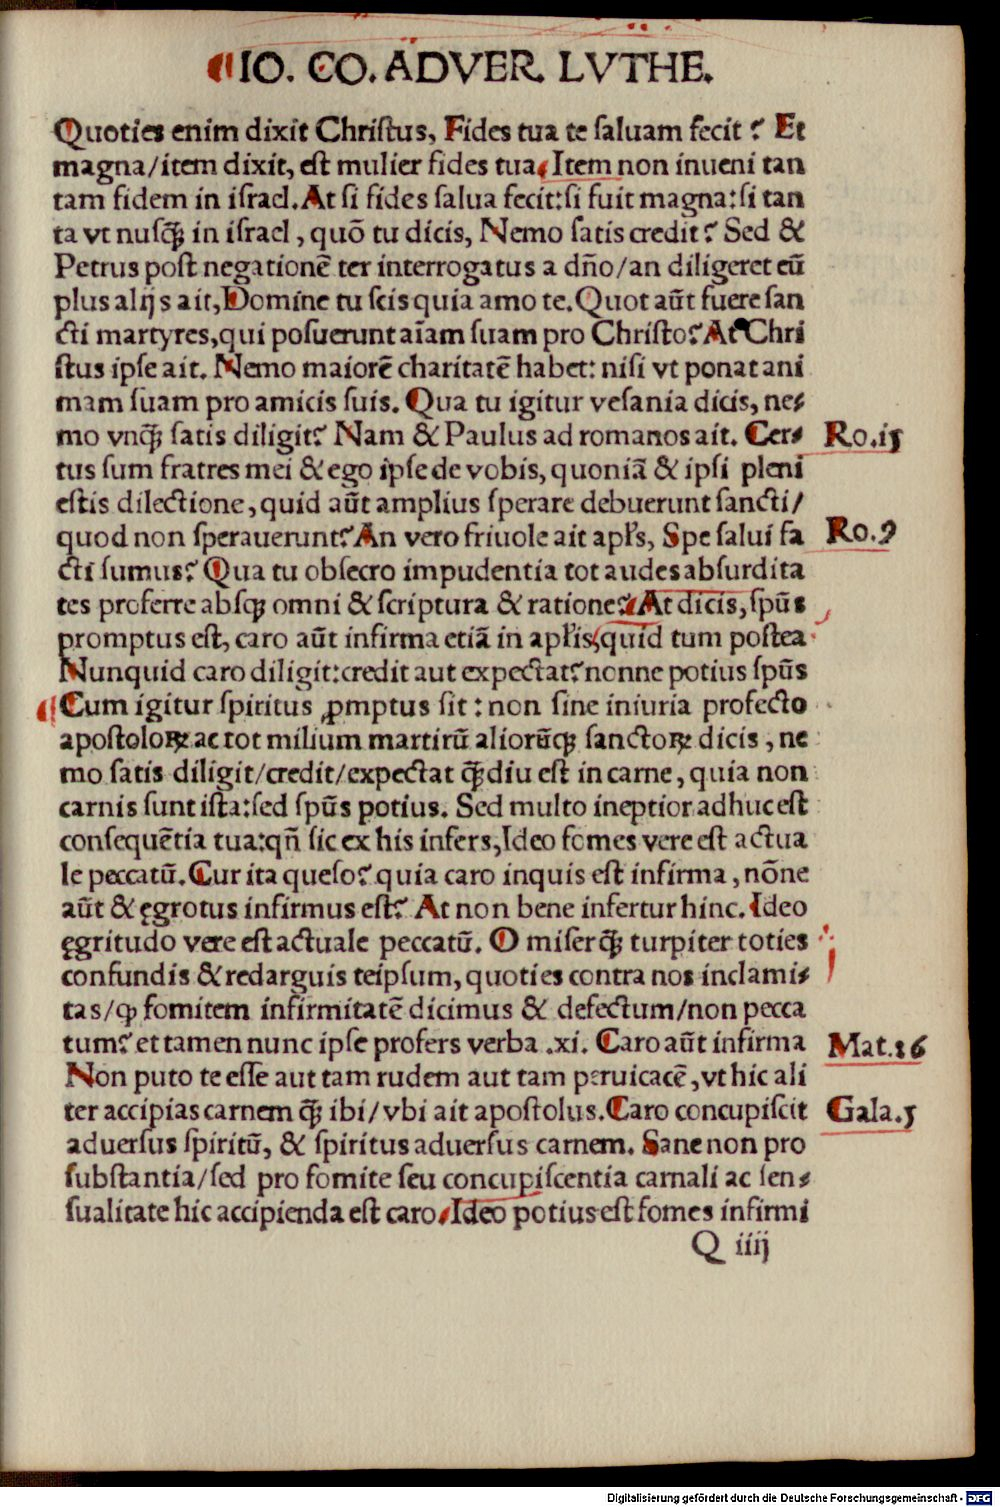 IO. CO. ADVER. LVTHE.
Quoties enim dixit Chriſtus, Fides tua te ſaluam fecit? Et
magna/item dixit, eſt mulier fides tua. Item non inueni tan
tam fidem in iſrael. At ſi fides ſalua fecit:ſi fuit magna:ſi tan
ta vt nuſꝙ̃ in iſrael, quō tu dicis, Nemo ſatis credit? Sed &
Petrus poſt negationē ter interrogatus a dño/an diligeret eū
plus alijs ait, Domine tu ſcis quia amo te. Quot aūt fuere ſan
cti martyres, qui poſuerunt aīam ſuam pro Chriſto? At Chri
ſtus ipſe ait. Nemo maiorē charitatē habet: niſi vt ponat ani
mam ſuam pro amicis ſuis. Qua tu igitur veſania dicis, ne⸗
mo vnꝙ̃ ſatis diligit? Nam & Paulus ad romanos ait. Cer⸗
Ro.15
tus ſum fratres mei & ego ipſe de vobis, quoniā & ipſi pleni
eſtis dilectione, quid aūt amplius ſperare debuerunt ſancti/
quod non ſperauerunt? An vero friuole ait apľs, Spe ſalui fa
Ro.9
cti ſumus? Qua tu obſecro impudentia tot audes abſurdita
tes proferre abſꝙ omni & ſcriptura & ratione? At dicis, ſpūs
promptus eſt, caro aūt infirma etiā in apľis, quid tum poſtea
Nunquid caro diligit:credit aut expectat? nonne potius ſpūs
Cum igitur ſpiritus ꝓmptus ſit: non ſine iniuria profecto
apoſtoloꝝ ac tot milium martirū aliorūꝙ ſanctoꝝ dicis, ne
mo ſatis diligit/credit/expectat ꝙ̃diu eſt in carne, quia non
carnis ſunt iſta:ſed ſpūs potius. Sed multo ineptior adhuc eſt
conſequētia tua:qñ ſic ex his infers, Ideo fomes vere eſt actua
le peccatū. Cur ita queſo? quia caro inquis eſt infirma, nōne
aūt & ęgrotus infirmus eſt? At non bene infertur hinc. Ideo
ęgritudo vere eſt actuale peccatū. O miſer ꝙ̃ turpiter toties
confundis & redarguis teipſum, quoties contra nos inclami⸗
tas/ꝙ fomitem infirmitatē dicimus & defectum/non pecca
tum? et tamen nunc ipſe profers verba .xi. Caro aūt infirma
Mat.26
Non puto te eſſe aut tam rudem aut tam peruicacē, vt hic ali
ter accipias carnem ꝙ̃ ibi/vbi ait apoſtolus. Caro concupiſcit
Gala.5
aduerſus ſpiritū, & ſpiritus aduerſus carnem. Sane non pro
ſubſtantia/ſed pro fomite ſeu concupiſcentia carnali ac ſen⸗
ſualitate hic accipienda eſt caro. Ideo potius eſt fomes infirmi
Q iiij
Digitalisierung gefördert durch die Deutsche Forschungsgemeinschaft - DFG